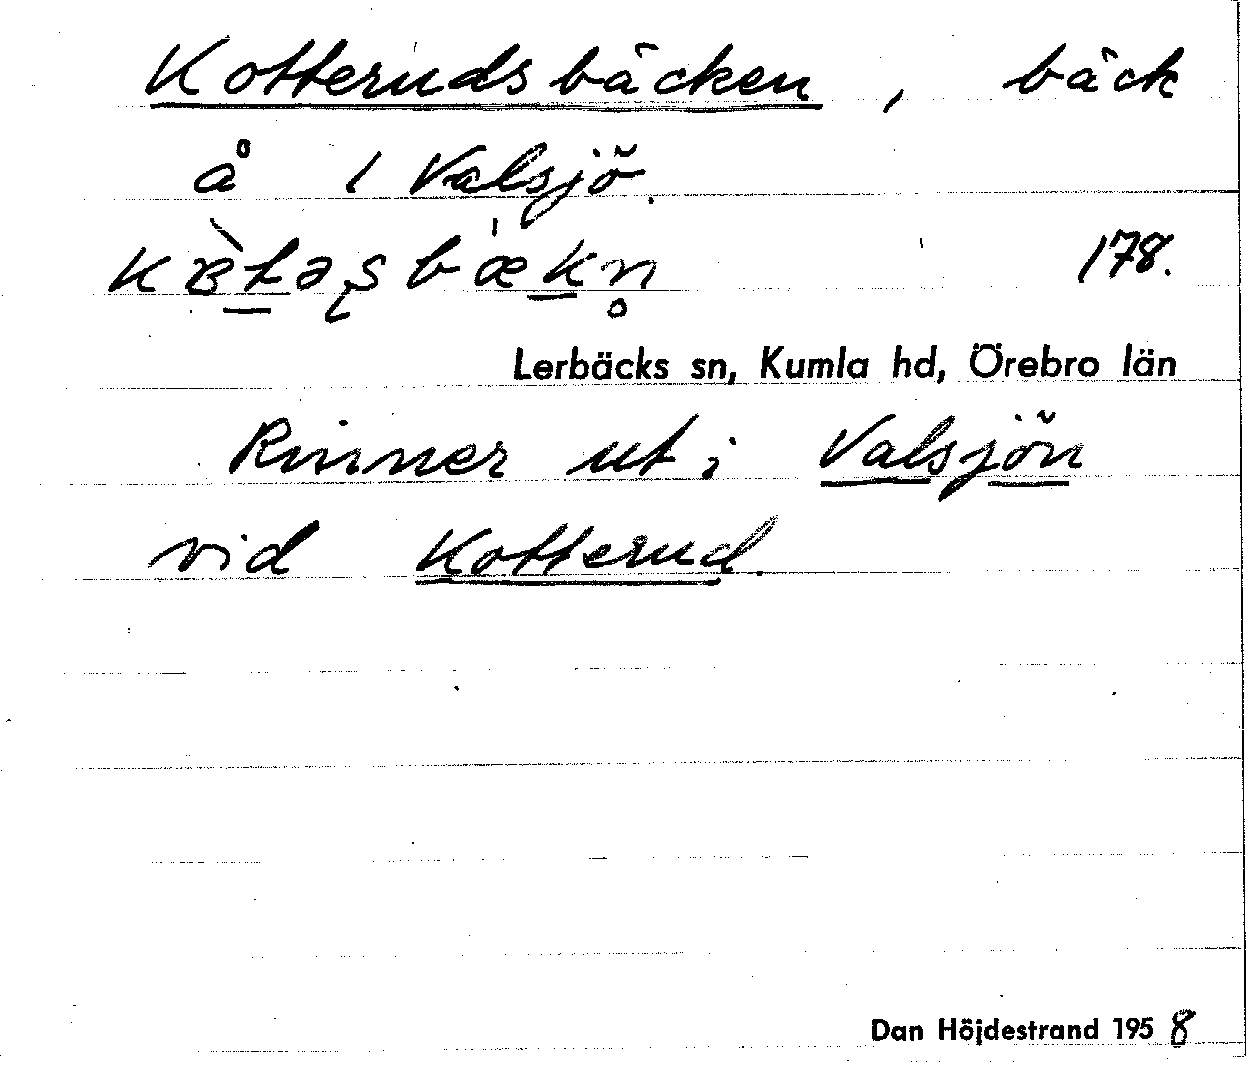 Kotterudsbäcken, bäck
å 1 Valsjö.
178.
Lerbäcks sn, Kumla hd, Örebro län
Rinner ut i Valsjön
vid Kotterud.
Dan Höjdestrand 1958